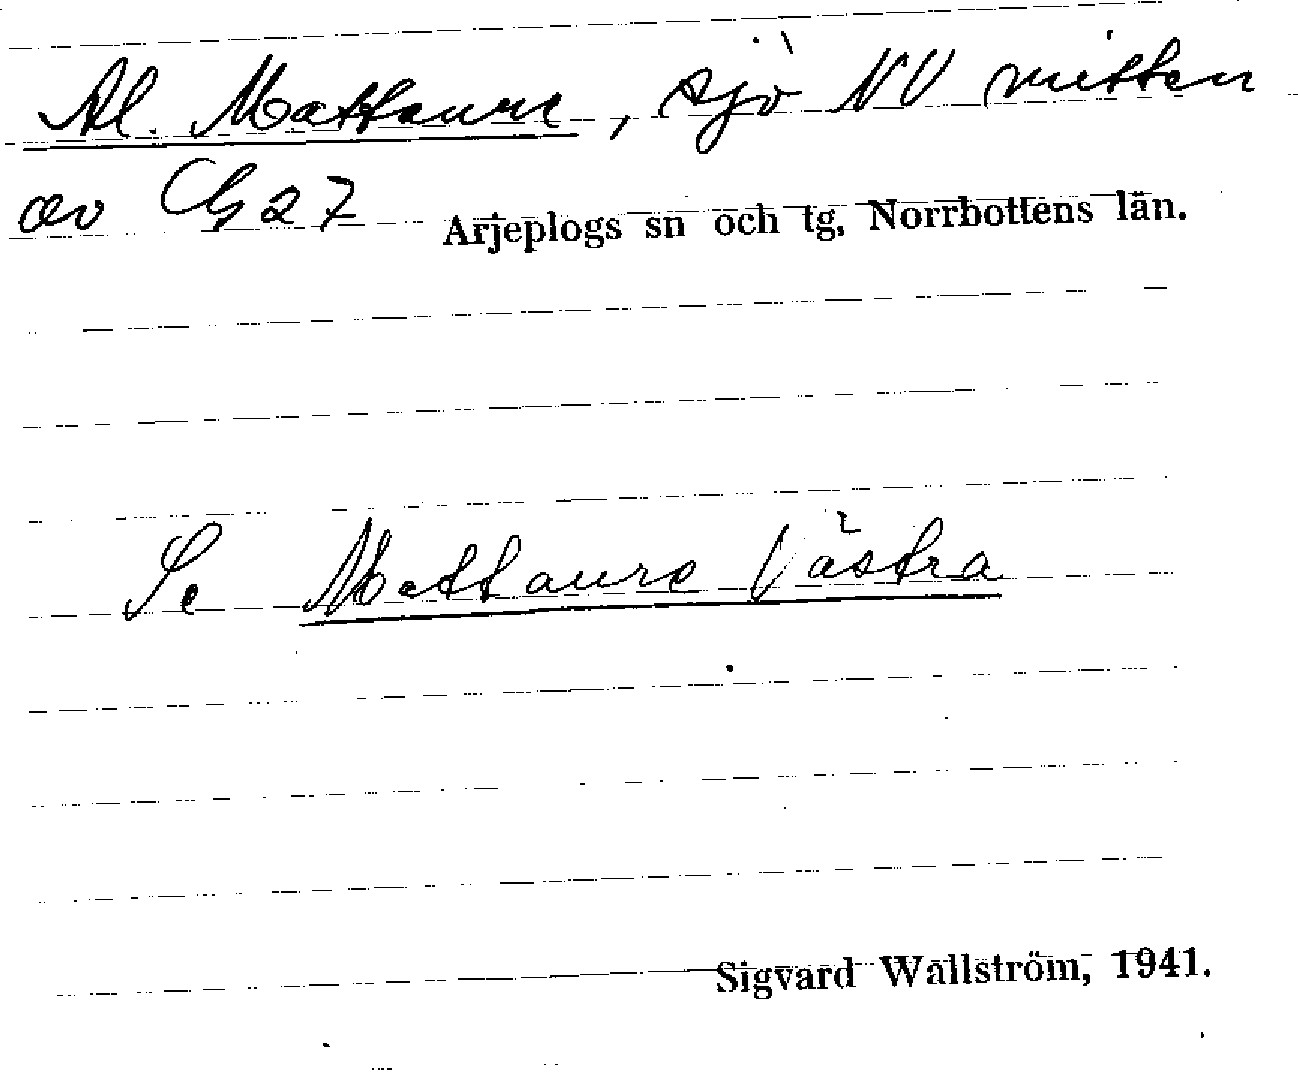 Al. Mattaure, sjö NV mitten
av Cg 27 Arjeplogs sn och tg, Norrbottens län.
Se Mattaure Västra
Sigvard Wallström, 1941.